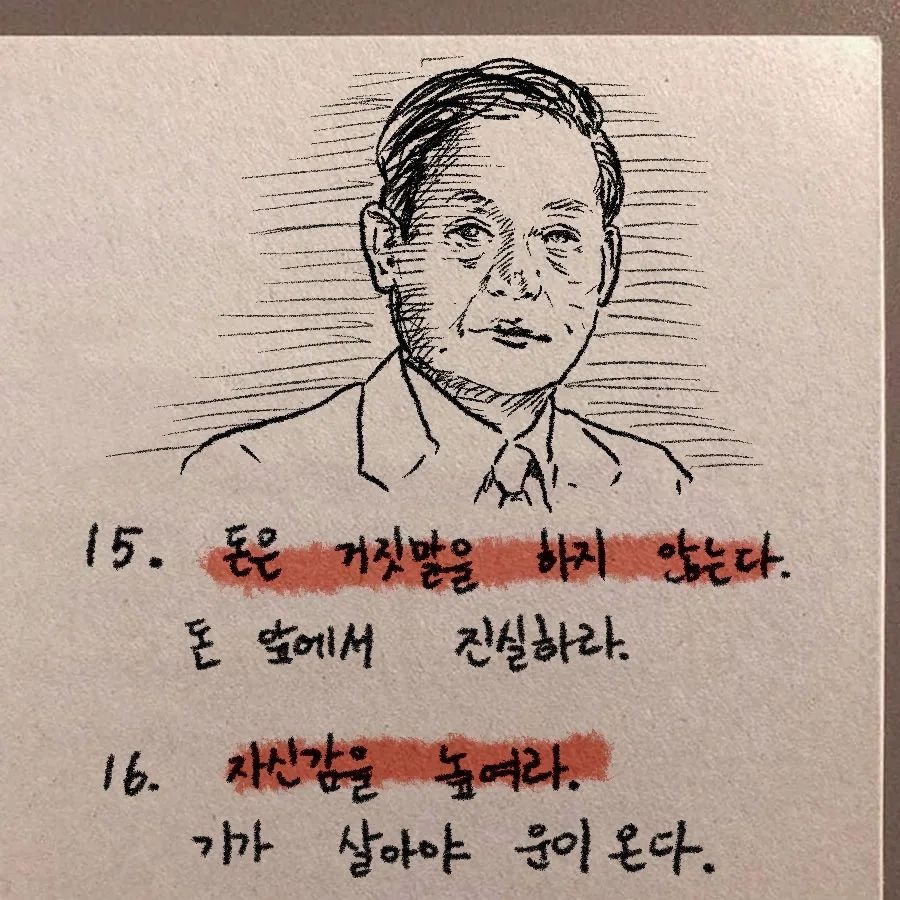 15. 돈은 거짓말을 하지 않는다.
돈 앞에서 진실하라.
16. 자신감을 높여라.
기가 살아야 운이 온다.